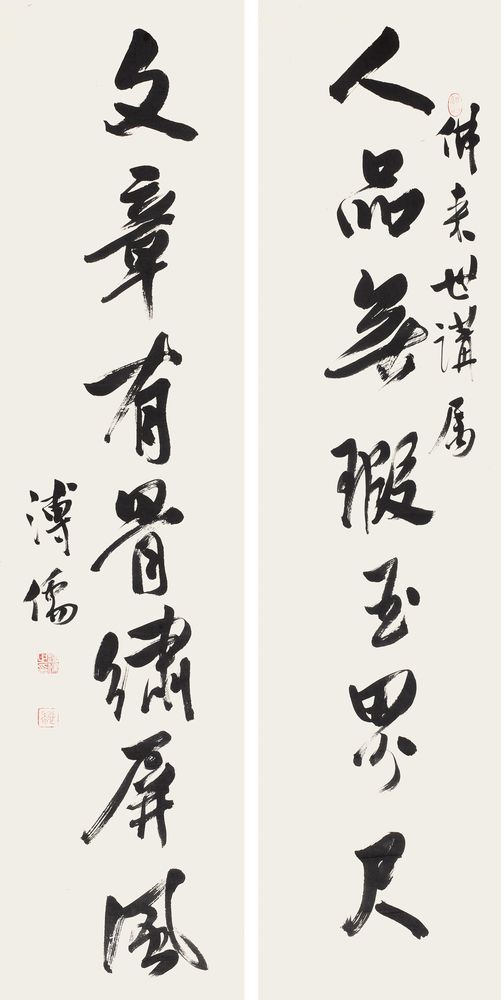 佛来世講属
人品無瑕玉界尺
文章有骨繡屏風
溥儒